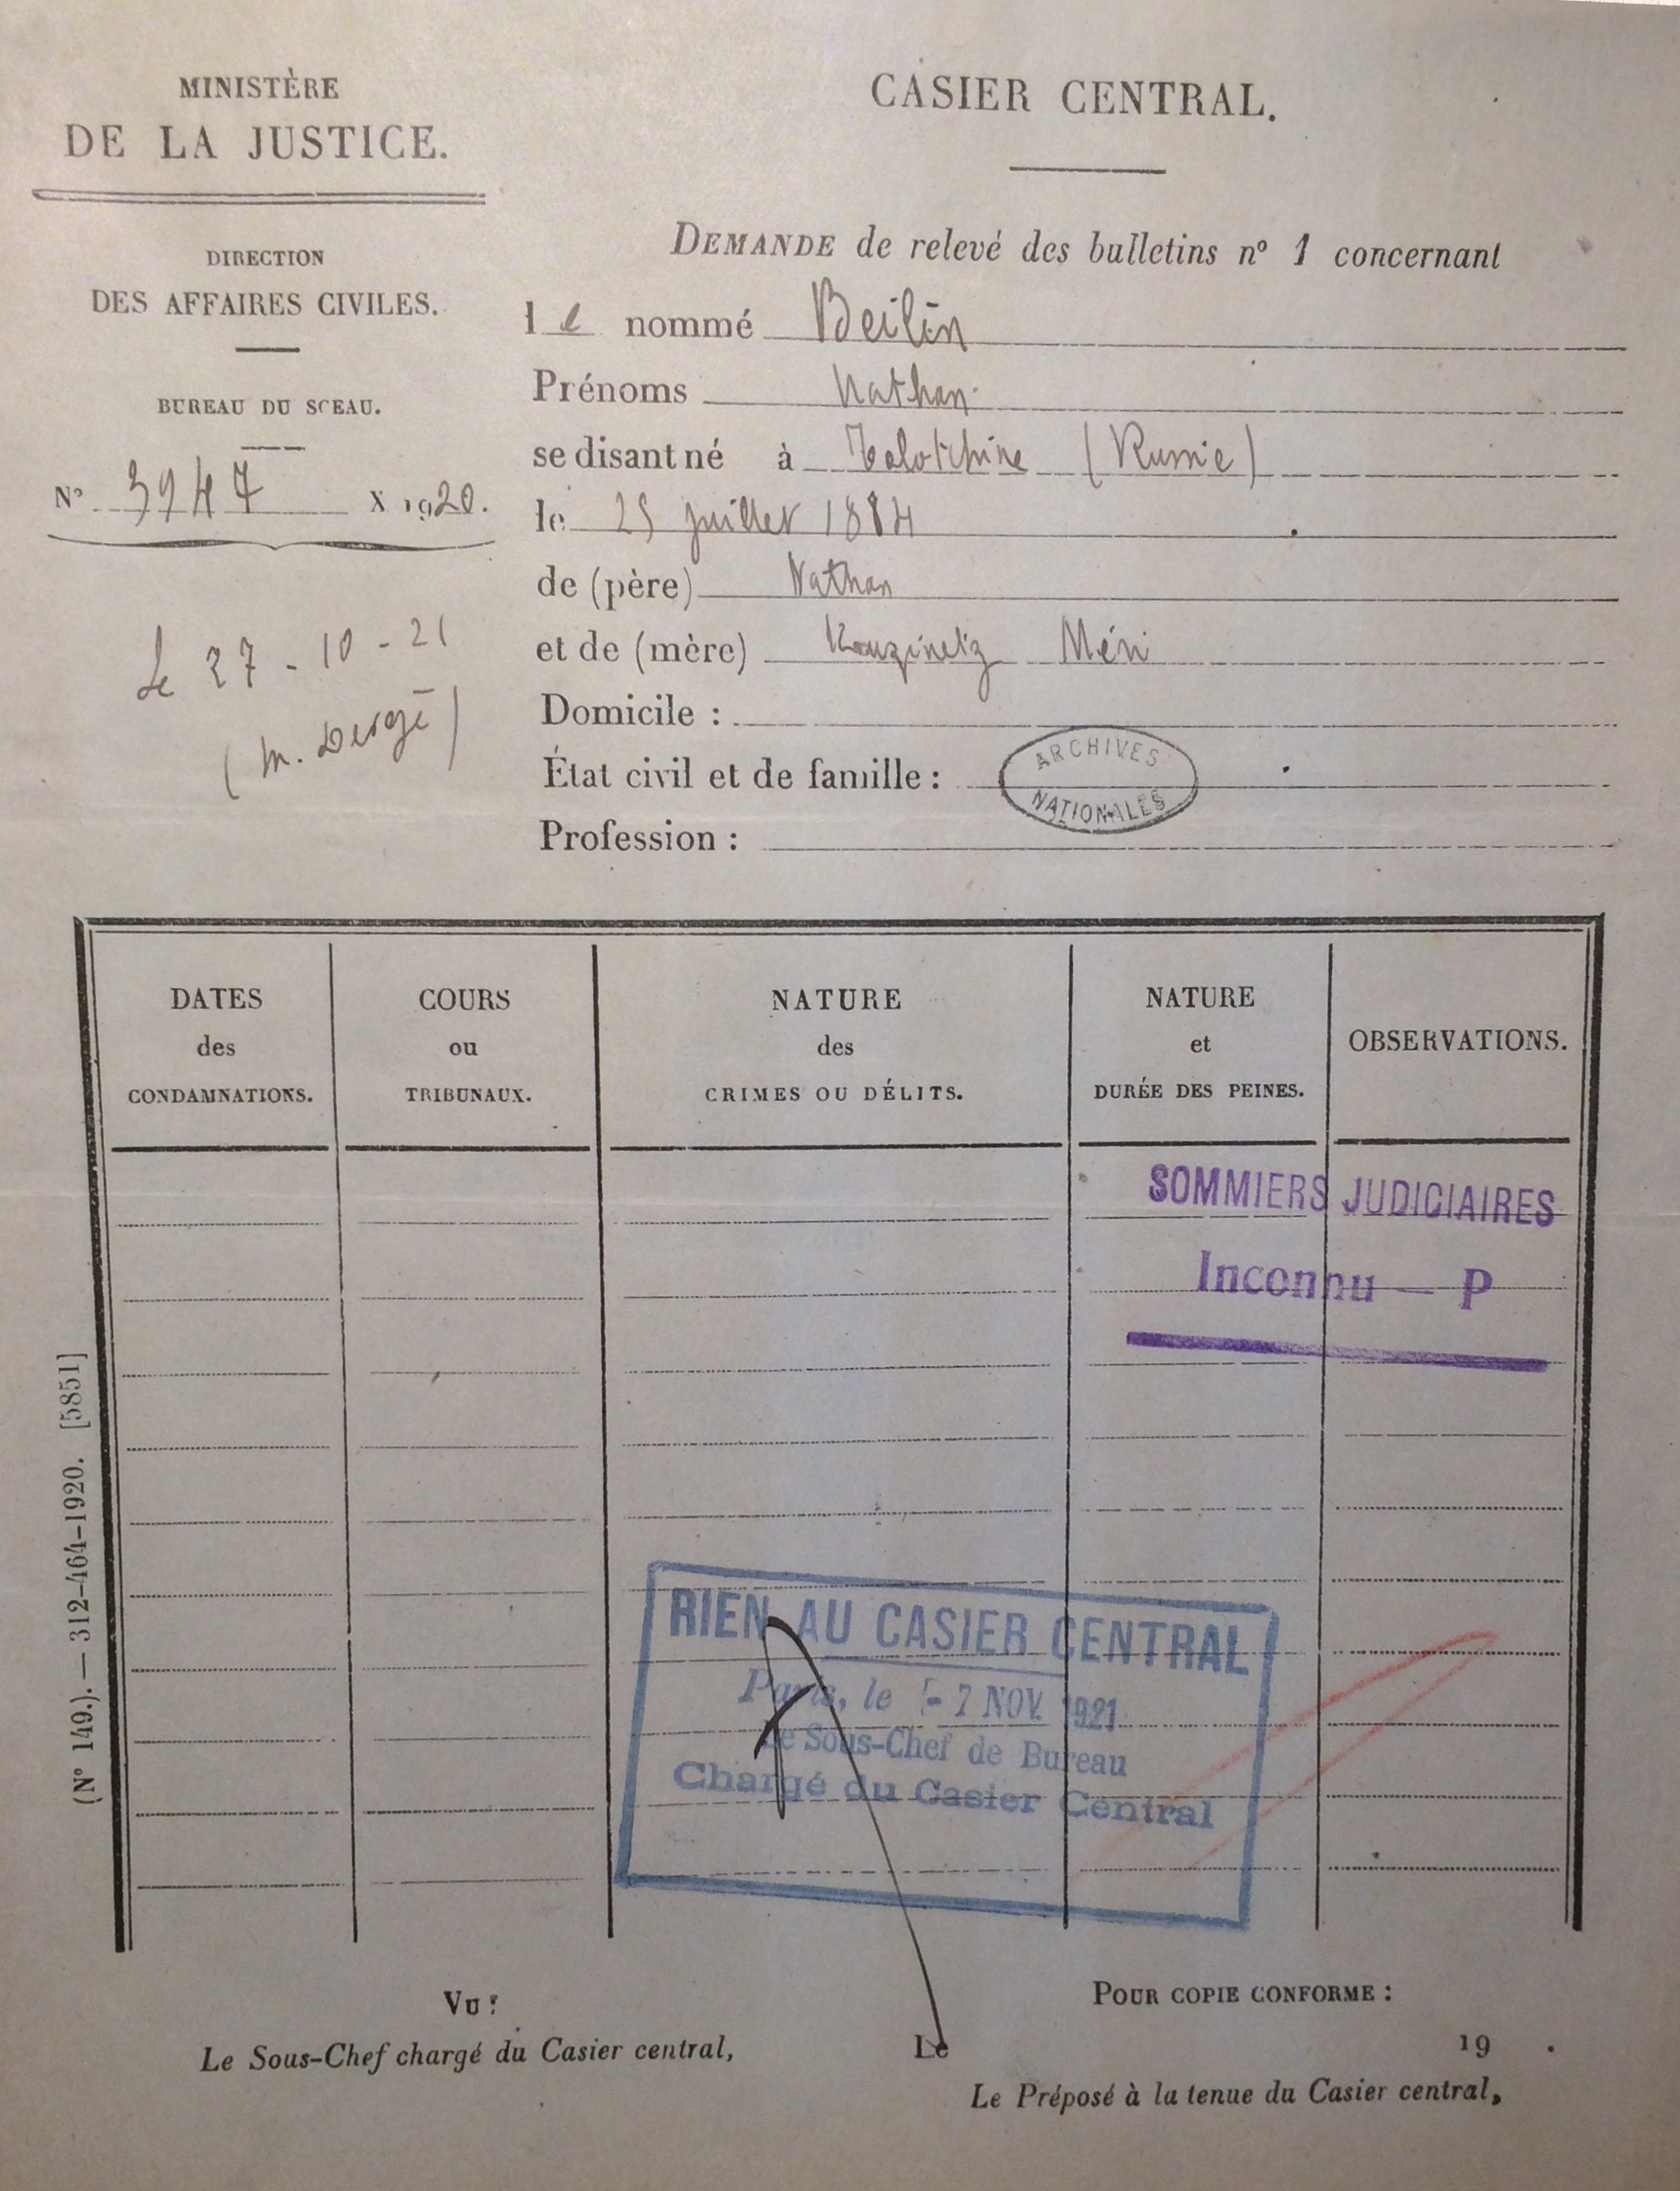 MINISTÈRE
DE LA JUSTICE.
DIRECTION
DES AFFAIRES CIVILES.
BUREAU DU SCEAU.
N° 3947 X 1920.
Le 27-10-21
(M. Dergé)
CASIER CENTRAL.
DEMANDE de relevé des bulletins n° 1 concernant
le nommé Beilin
Prénoms Nathan
se disant né à Tolotchine (Russie)
le 25 juillet 1884
de (père) Nathan
et de (mère) Kouzinetz Méri
Domicile :
État civil et de famille :
ARCHIVES
NATIONALES
Profession :
DATES
des
CONDAMNATIONS.
COURS
ou
TRIBUNAUX.
NATURE
des
CRIMES OU DÉLITS.
NATURE
et
DURÉE DES PEINES.
OBSERVATIONS.
SOMMIERS JUDICIAIRES
Inconnu — P
RIEN AU CASIER CENTRAL
Paris, le - 7 NOV. 1921
Le Sous-Chef de Bureau
Chargé du Casier Central
(N° 149.). — 312-464-1920. [5851]
VU :
Le Sous-Chef chargé du Casier central,
POUR COPIE CONFORME :
Le 19 .
Le Préposé à la tenue du Casier central,